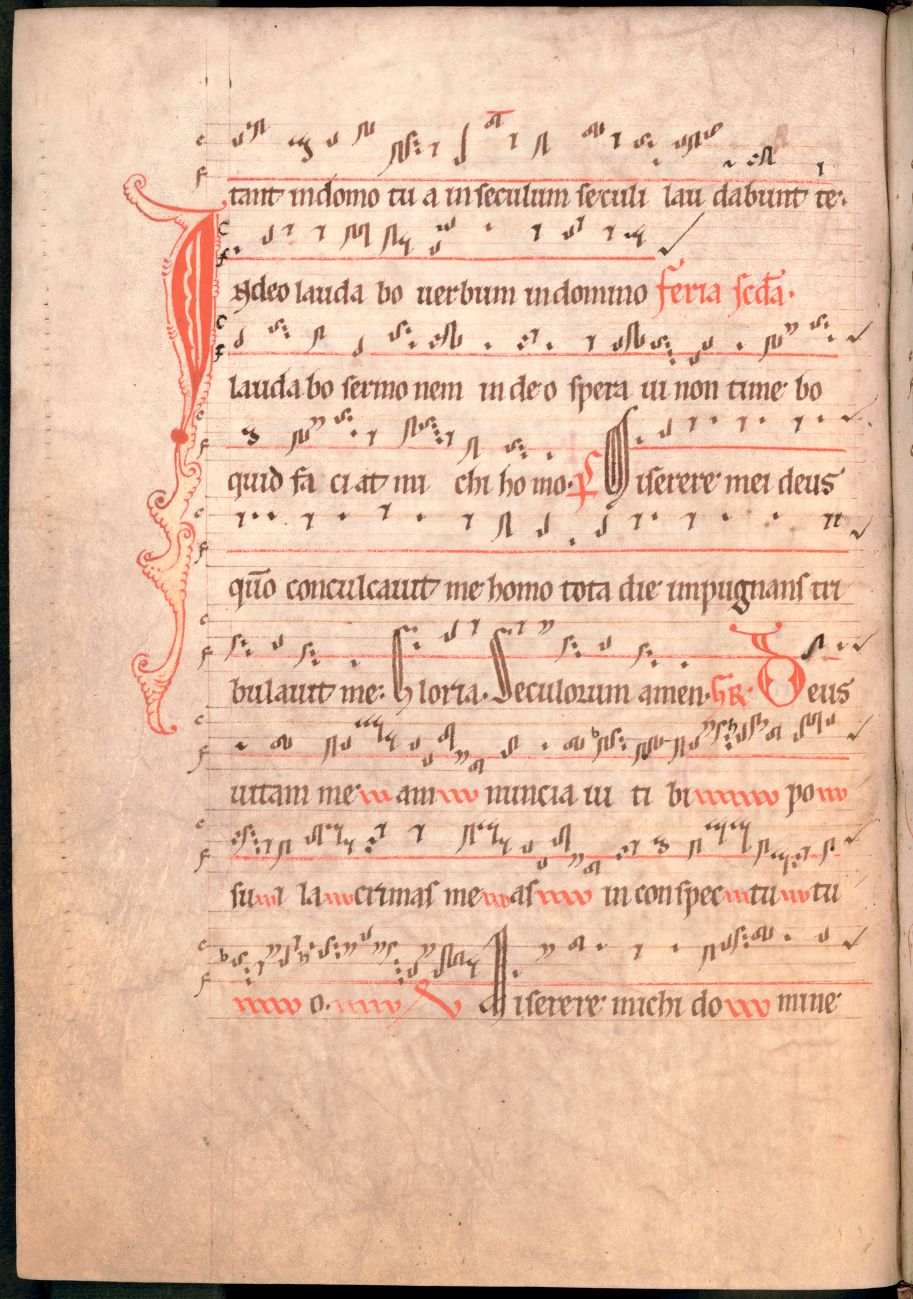 tant in domo tu a in seculum seculi lau dabunt te.
In deo lauda bo uerbum in domino feria scda.
lauda bo sermo nem in de o spera ui non time bo
quid fa ci at mi chi ho mo. Ps Miserere mei deus
qm̄ conculcauit me homo tota die inpugnans tri
bulauit me. Gloria. Seculorum amen. GR Deus
uitam me am nuncia ui ti bi po
su i la crimas me as in conspec tu tu
o. V Miserere michi do mine